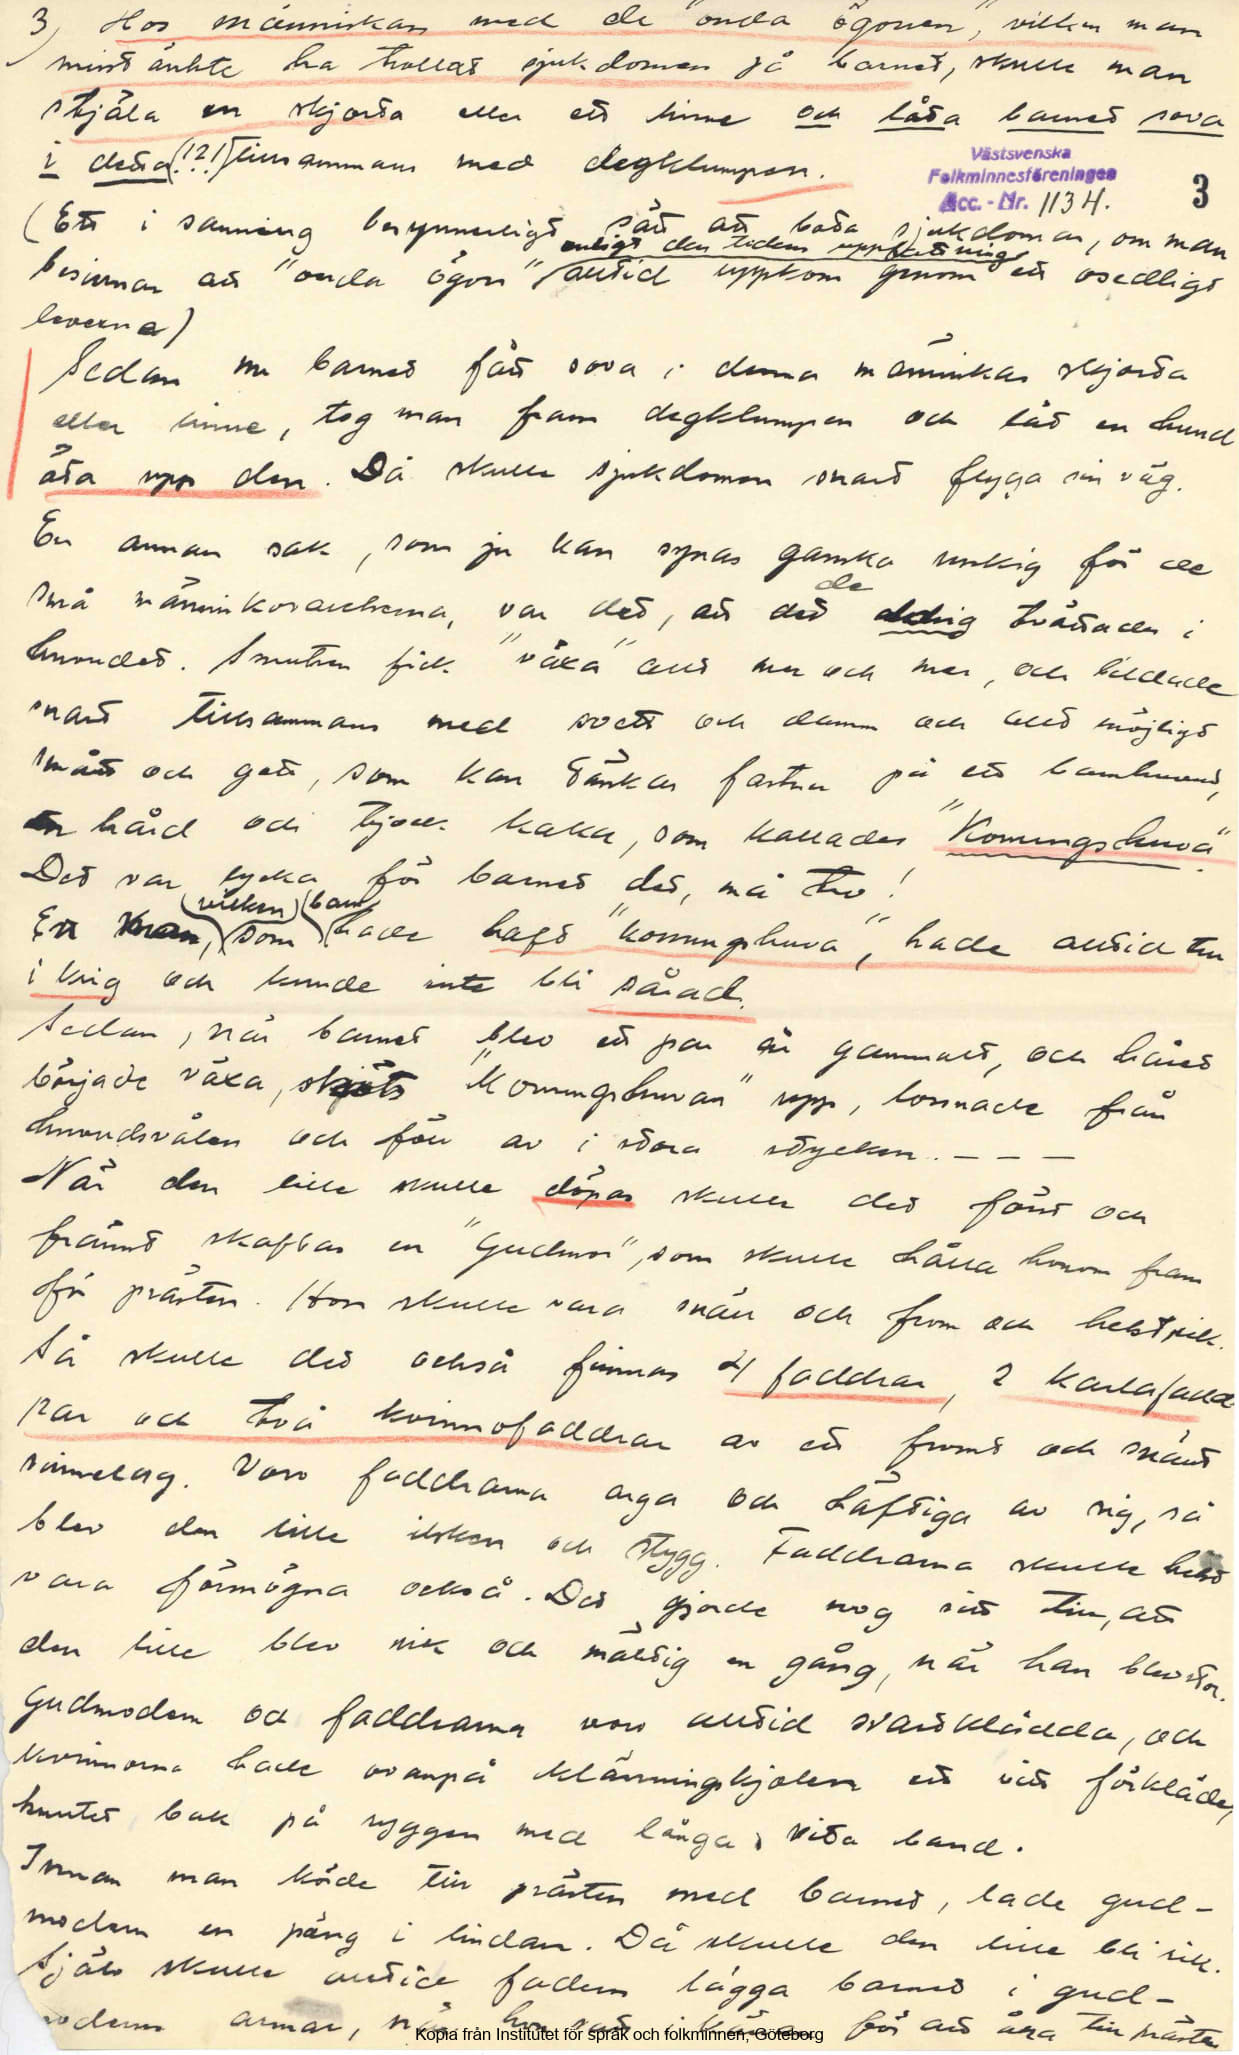 3) Hos människan med de "onda ögonen", vilken man
misstänkte ha trollat sjukdomen på barnet, skulle man
stjäla en skjorta eller ett linne och låta barnet sova
i detta (!?!) tillsammans med degklumpen.
Västsvenska
Folkminnesföreningen
Acc. - Nr. 1134.
3
(Ett i sanning besynnerligt sätt att bota sjukdomar, om man
enligt den tidens uppfattning
besinnar att "onda ögon" alltid uppkom genom ett osedligt
leverne)
Sedan nu barnet fått sova i denna människas skjorta
eller linne, tog man fram degklumpen och lät en hund
äta upp den. Då skulle sjukdomen snart flyga sin väg.
En annan sak, som ju kan synas ganska unkig för de
de
små människovarelserna, var det, att det aldrig tvättades i
huvudet. Smutsen fick "växa" allt mer och mer, och bildade
snart tillsammans med svett och damm och allt möjligt
smått och gott, som kan tänkas fastna på ett barnhuvud,
en hård och tjock kaka, som kallades "Konungshuva".
Det var lycka för barnet det, må tro!
(vilken) (barn)
En man, som hade haft "konungshuva", hade alltid tur
i krig och kunde inte bli sårad.
Sedan, när barnet blev ett par år gammalt, och håret
började växa, sköts "Konungshuvan" upp, lossnade från
huvudsvålen och föll av i stora stycken. – – –
När den lille skulle döpas skulle det först och
främst skaffas en "Gudmor", som skulle hålla honom fram
för prästen. Hon skulle vara snäll och from och helst rik.
Så skulle det också finnas 4 faddrar, 2 karlafadd-
rar och två kvinnofaddrar av ett fromt och snällt
sinnelag. Voro faddrarna arga och häftiga av sig, så
blev den lille ilsken och stygg. Faddrarna skulle helst
vara förmögna också. Det gjorde nog sitt till, att
den lille blev rik och mäktig en gång, när han blev stor.
Gudmodern och faddrarna voro alltid svartklädda, och
kvinnorna hade ovanpå klänningskjolen ett vitt förkläde,
knutet bak på ryggen med långa, vita band.
Innan man körde till prästen med barnet, lade gud-
modern en päng i lindan. Då skulle den lille bli rik.
Själv skulle alltid fadern lägga barnet i gud-
moderns armar, när hon satt i kärran för att åka till prästen
Kopia från Institutet för språk och folkminnen, Göteborg